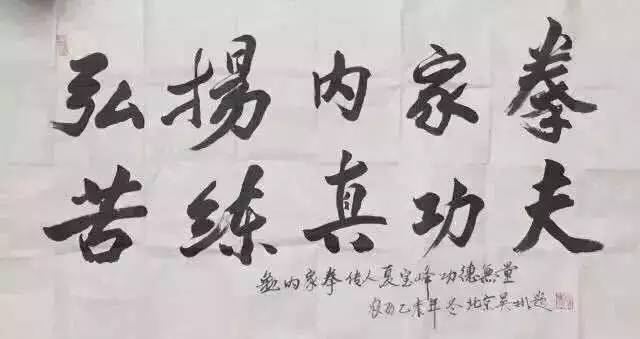 弘揚内家拳
苦练真功夫
内家拳传人夏宝峰功德無量
乙未年冬北京吴題